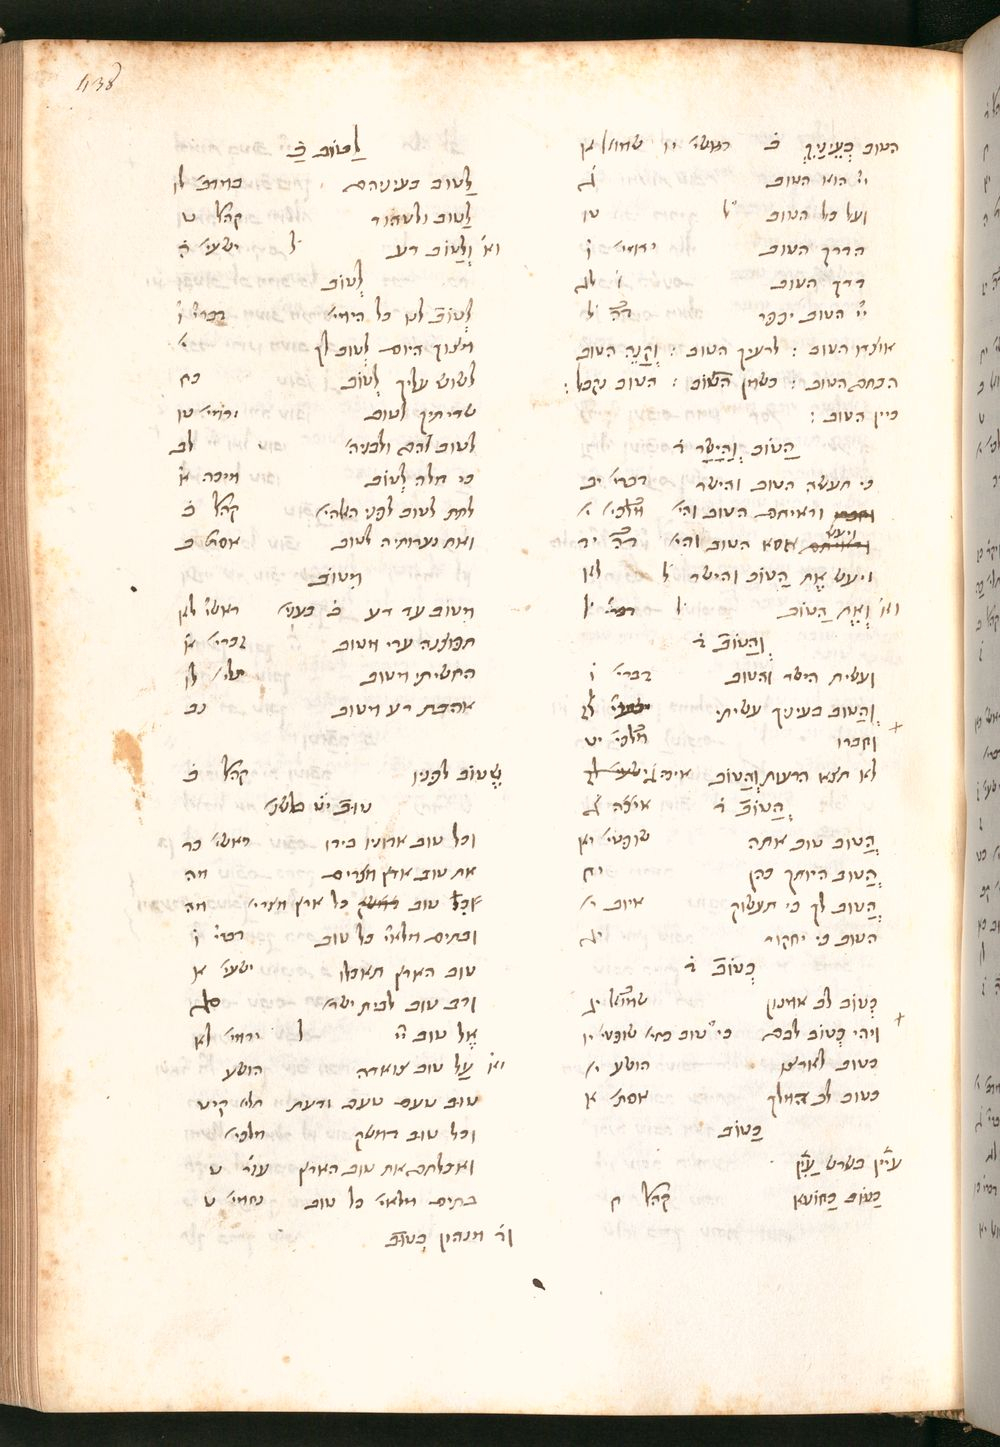 438
הטוב בְּעֵינֶיךָ בֿ ראשי׳ יו שמואל א
יי׳ הוא הטוב ג
ועל כל הטוב ל׳ טו
הדרך הטוב ירמי׳ ו
דרך הטוב ו׳ לג
יי׳ הטוב יכפר דה׳ ל׳
אוצרו הטוב : לרעיך הטוב : וְקָנֶה הטוב
הבחם הטוב : כשמן הַטּוֹב : הטוב נקבל :
כיין הטוב :
הַטּוֹב וְהַיָּשָׁר דֿ
כי תעשה הטוב והישר דברי׳ יב
וראיתם הטוב והי׳ מלכי׳ י׳
ויעש אסא הטוב והי׳ דה׳ יד
ויעש אֶת הַטוֹב והישר ל׳ לא
וא׳ וְאֶת הַטוֹב ל׳ דברי׳ ל׳
וְהַטוֹב דֿ
ועשית הישר והטוב דברי׳ ו
וְהַטוב בעיניך עשיתי
וחברו מלכי׳ יט
לא תצא הרעות וְהַטוֹב איכה ג
הֲטוֹב דֿ
הֲטוב טוב אתה שופטי׳ יא
הֲטוב היותך כהן יח
הֲטוב לך כי תעשוק איוב י׳
הטוב כי יחקור יג
כְּטוֹב דֿ
כְּטוֹב לב אמנון שמואל יג
ויהי כְּטוֹב לבם כי טוב כתי׳ שופטי׳ יו
כטוב לארצו הושע י׳
כטוב לב המלך אסתר א
כַּטוֹב
עיין בשרש עַיִן
כַּטוֹב כַּחוֹטא קהל׳ ט
לַטוֹב בֿ
לַטוב בעיניהם במדב׳ לו
לַטוב ולטהור קהל׳ ט
וא׳ וְלַטוֹב רע ל׳ ישעי׳ ה
לְטוֹב
לְטוֹב לנו כל הימי׳ דברי׳ ו
מצוך היום לְטוב לך י׳
לשוש עליך לְטוֹב כח
שריתיך לטוב ירמי׳ טו
לטוב להם ולבניה׳ לב
כי חלה לְטוֹב מיכה א
לתת לטוב לפני האלהי׳ קהל׳ ב
ואת נערותיה לטוב אסתר ב
מטוֹב
מטוב עד רע בֿ בעני׳ ראשי׳ לא
תפוצנה ערי מטוב זכרי׳ א
החשיתי מטוב תלי׳ לט
אהבת רע מטוב נב
שֶטוֹב לפניו קהל׳ ב
טוב
וכל טוב אדוניו בידו ראשי׳ כד
את טוב ארץ מצרים מה
כל טוב כל ארץ מצרי׳ מה
ובתים מלאי׳ כל טוב דברי׳ ו
טוב הארץ תאכלו ישעי׳ א
ורב טוב לבית ישר׳ סג
אֶל טוב יי׳ ל׳ ירמי׳ לא
וא׳ עַל טוב צוארה הושע
טוב טעם ודעת תלי׳ קיט
וכל טוב דמשק מלכי׳
ואכלתם את טוב הארץ עזר׳ ט
בתים מלאי׳ כל טוב נחמי׳ ט
וד׳ מנהון כְּטוֹב